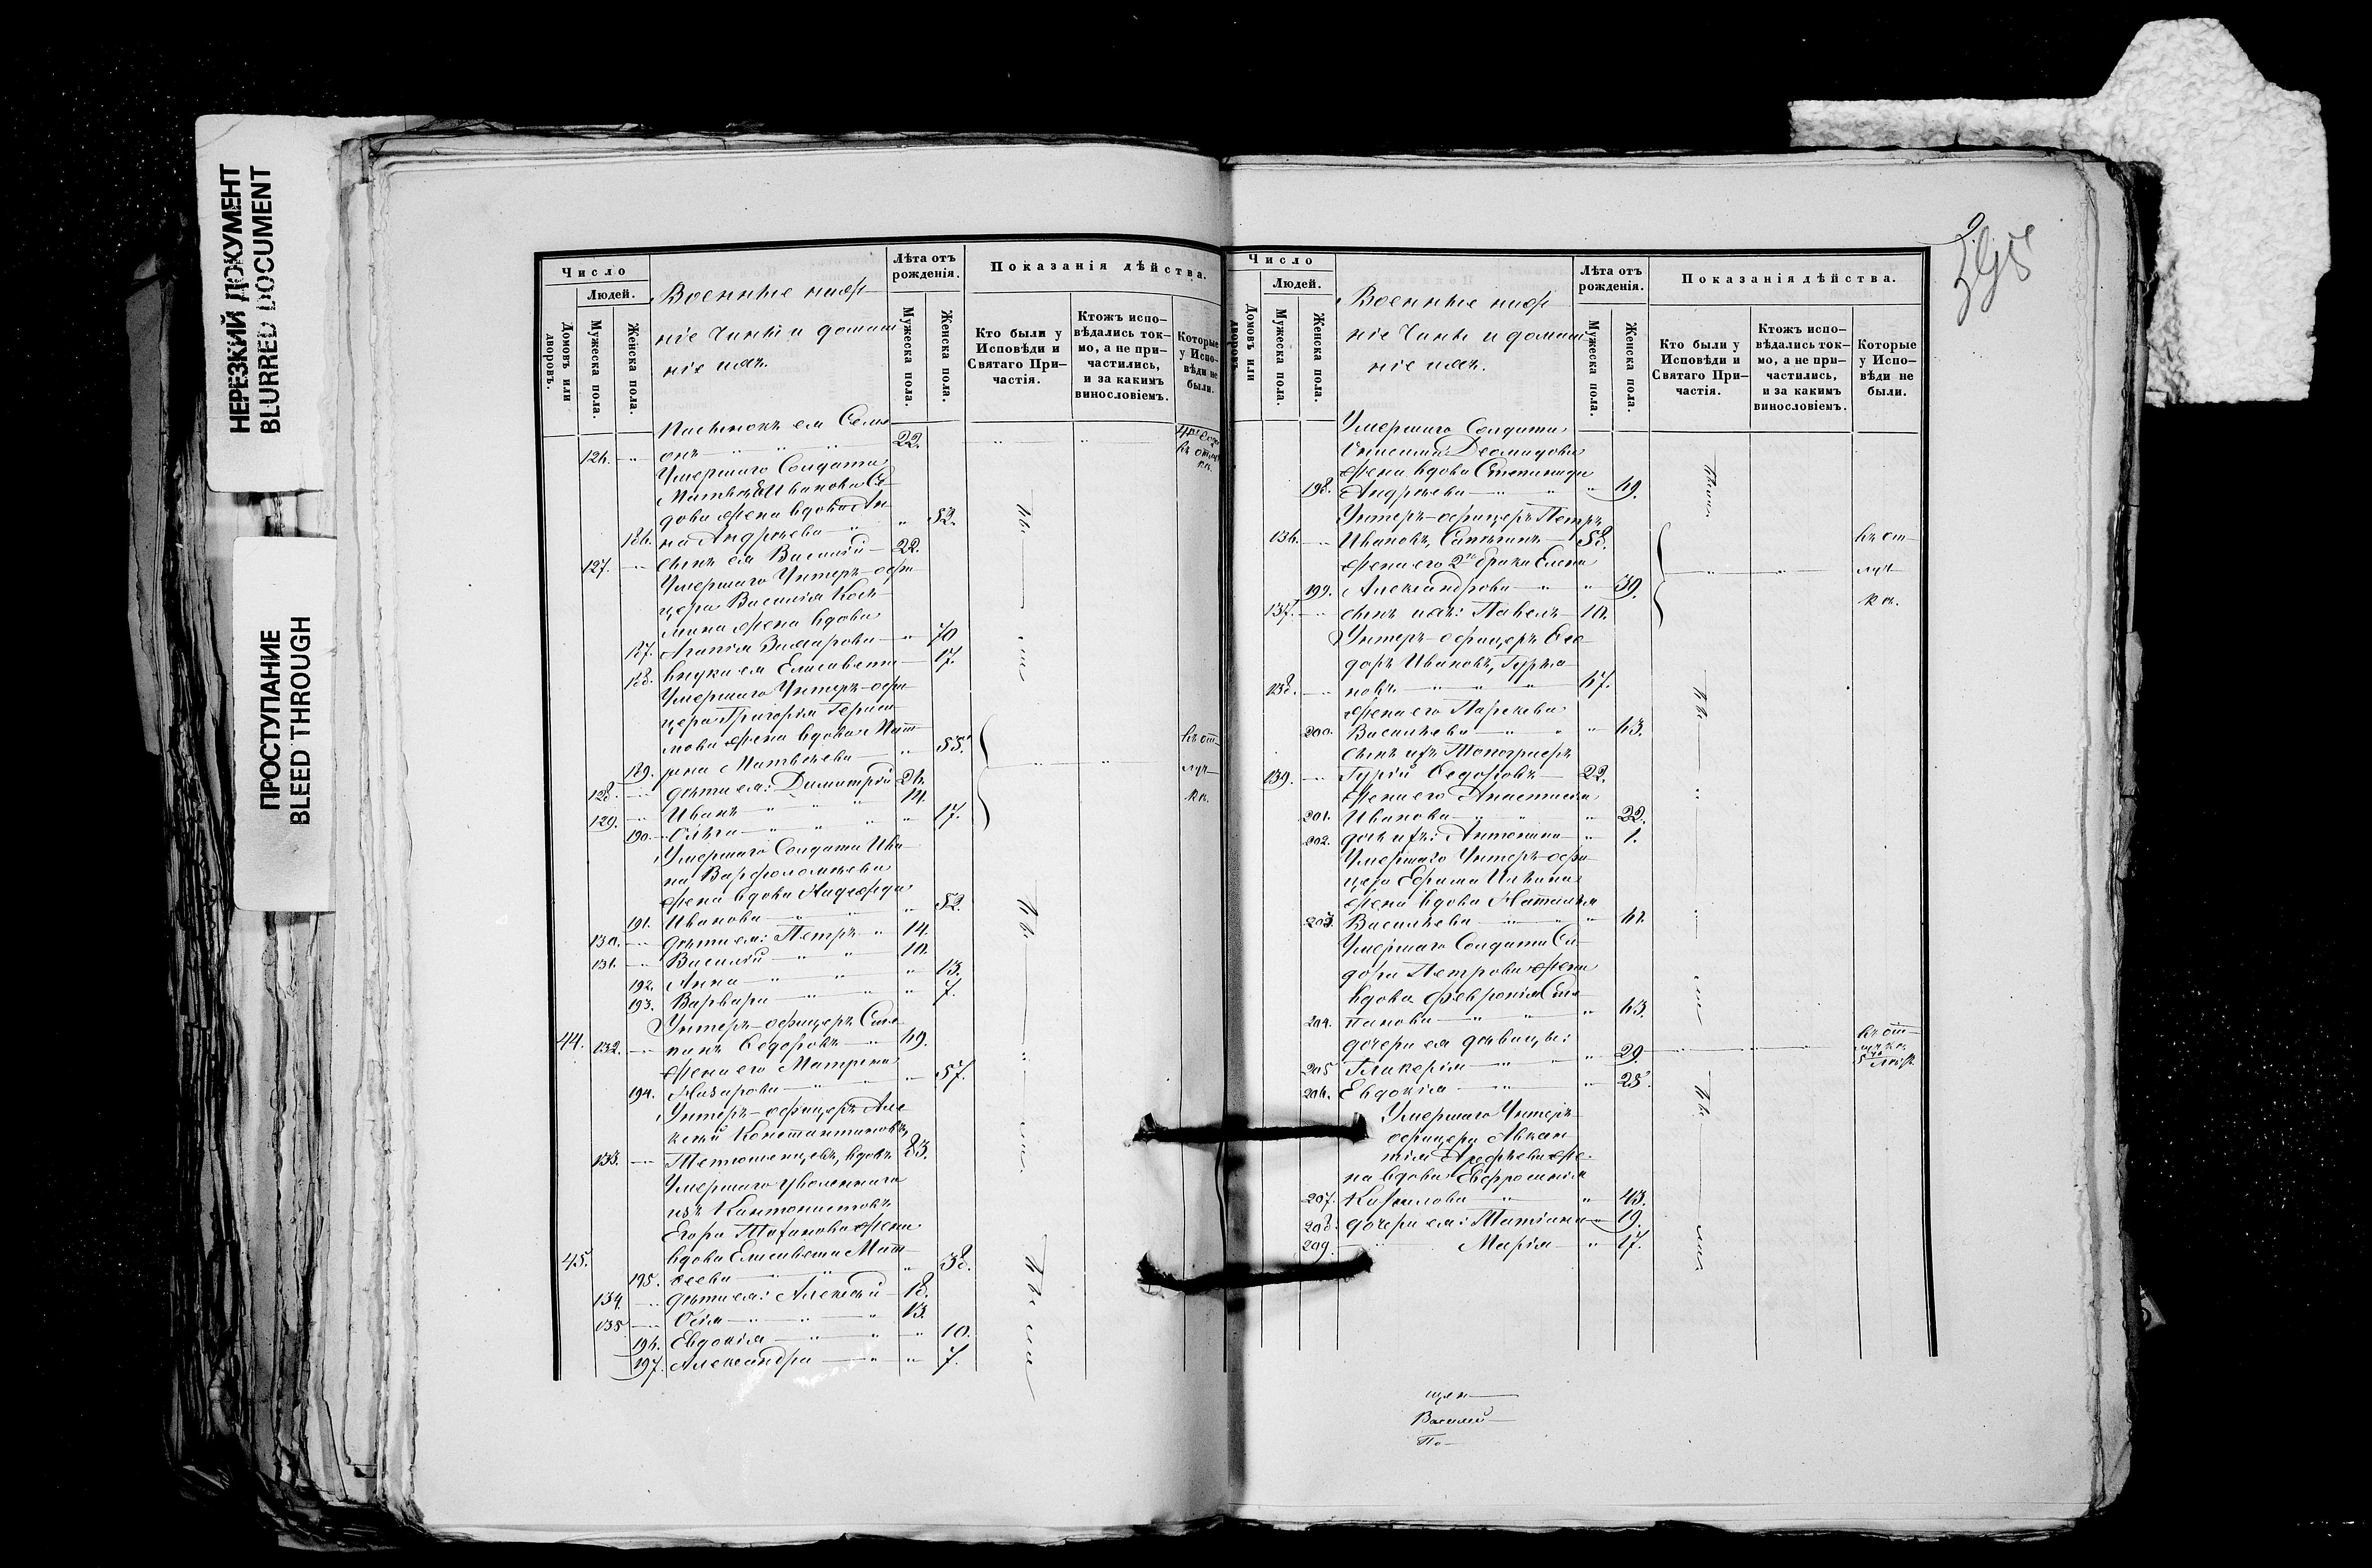 НЕРЕЗКИЙ ДОКУМЕНТ
BLURRED DOCUMENT
ПРОСТУПАНИЕ
BLEED THROUGH
Число
Людей.
Домовъ или дворовъ.
Мужеска пола.
Женска пола.
Военные ниж-
ніе чины и домаш-
ніе ихъ.
Лѣта отъ рожденія.
Мужеска пола.
Женска пола.
Показанія дѣйства.
Кто были у Исповѣди и Святаго При-частія.
Ктожъ испо-вѣдались ток-мо, а не при-частились, и за какимъ винословіемъ.
Которые у Испо-вѣди не были.
Пасынокъ ея Семі-
126. онъ 22.
Умершаго Солдата
Матвѣя Иванова Се-
дова жена вдова Ан-
186. на Андреева 52.
127. сынъ ея Василій 22.
Умершаго Унтеръ-офи-
цера Василія Козь-
мина жена вдова
187. Агапія Захарова 70
188. внука ея Елисавета 17.
Умершаго Унтеръ-офи-
цера Григорія Гераси-
мова жена вдова Мат-
189. рена Матвѣева 55. въ от-
128. дѣти ея: Димитрій 26. луч-
129. Иванъ 14. кѣ.
190. Ольга 17.
Умершаго Солдата Ива-
на Варфоломѣева
жена вдова Надежда
191. Иванова 52.
130. дѣти ея: Петръ 14.
131. Василій 10.
192. Анна 13.
193. Варвара 7.
Унтеръ-офицеръ Сте-
44. 132. панъ Ѳедоровъ 69.
жена его Матрена
194. Назарова 57.
Унтеръ-офицеръ Але-
ксѣй Константиновъ,
133. вдовъ 83.
Умершаго уволеннаго
изъ Кантонистовъ
Егора жена
45. вдова Елисавета Мат-
195. ѳеева 38.
134. дѣти ея: Алексѣй 18.
135. Осія 13.
196. Евдокія 10.
197. Александра 7.
Число
Людей.
Домовъ или дворовъ.
Мужеска пола.
Женска пола.
Военные ниж-
ніе чины и домаш-
ніе ихъ.
Лѣта отъ рожденія.
Мужеска пола.
Женска пола.
Показанія дѣйства.
Кто были у Исповѣди и Святаго При-частія.
Ктожъ испо-вѣдались ток-мо, а не при-частились, и за какимъ винословіемъ.
Которые у Испо-вѣди не были.
Умершаго Солдата
Діомидова
жена вдова Степанида
198. Андреева 69.
Унтеръ-офицеръ Петръ
136. Ивановъ, 58. въ от-
жена его 2го брака Елена луч-
199. Александрова 39. кѣ.
137. сынъ ихъ: Павелъ 10.
Унтеръ-офицеръ Ѳео-
доръ Ивановъ, Гурья-
138. новъ 67.
жена его Параскева
200. Васильева 63.
сынъ ихъ Топографъ
139. Гурій Ѳедоровъ 22.
жена его Анастасія
201. Иванова 22.
202. дочь ихъ: Антонина 1.
Умершаго Унтеръ-офи-
цера Ефима Ильина
жена вдова Наталья
203. Васильева 61.
Умершаго Солдата Си-
дора Петрова жена
вдова Февронія Сте-
204. панова 63.
дочери ея дѣвицы:
205 Гликерія 29. въ от-
206. Евдокія 25.
Умершаго Унтеръ-
офицера Авксен-
тія Андреева же-
на вдова Евфросинія
207. Кирилова 43.
208. дочери ея: Татіана 19.
209. Марія 17.
Василій
По-